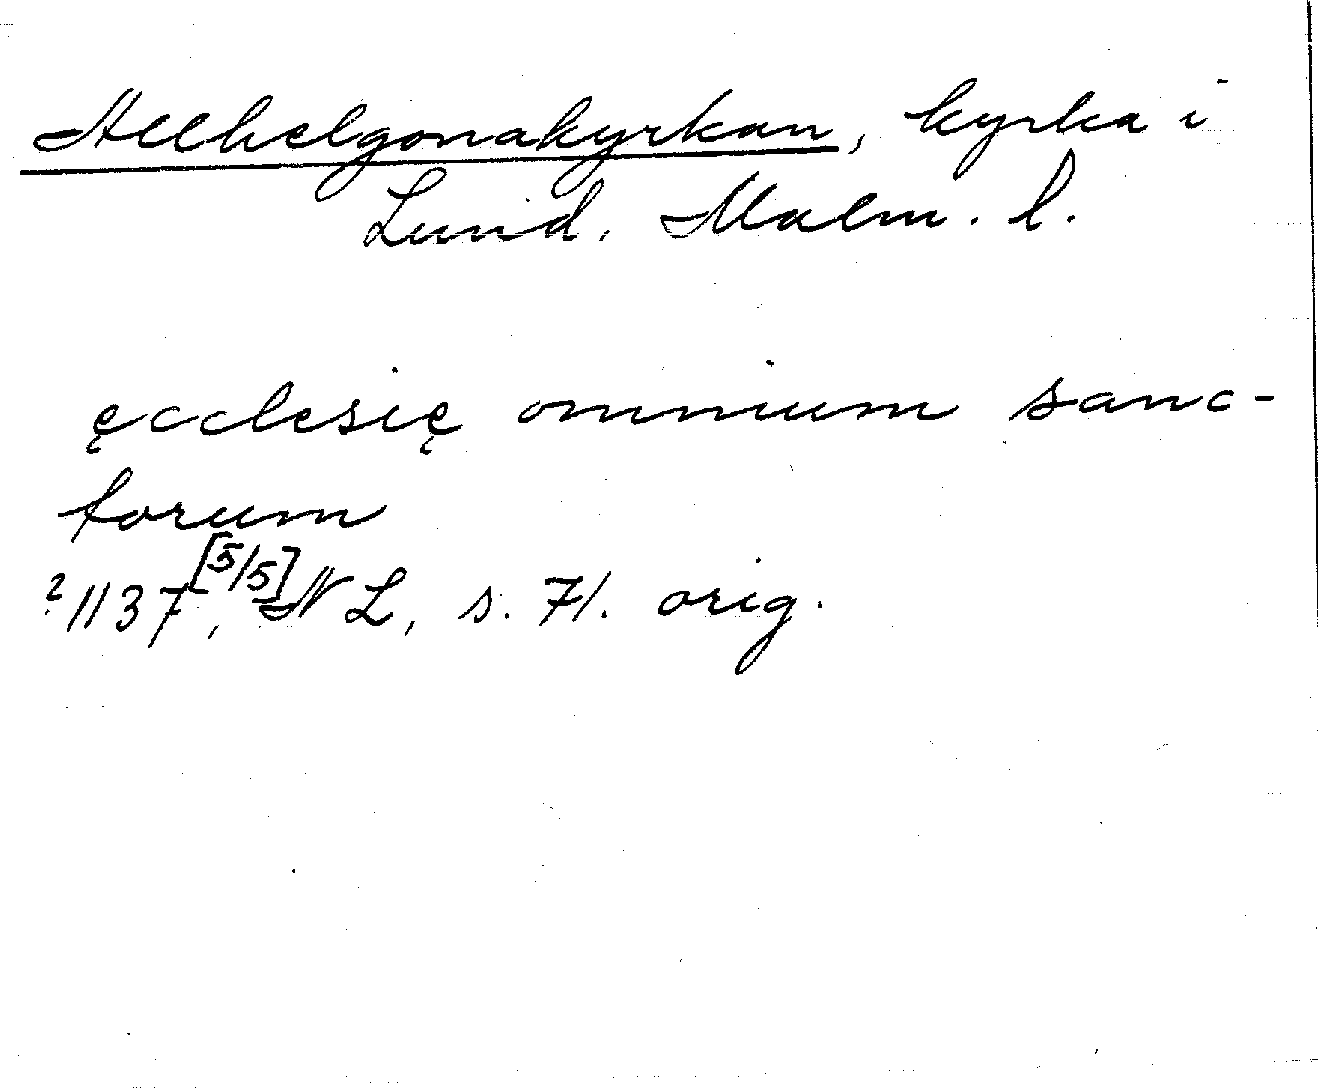 Allhelgonakyrkan, kyrka i
Lund. Malm. l.
ęcclesię omnium sanc-
torum
?1137[5/5], NL, s. 71. orig.